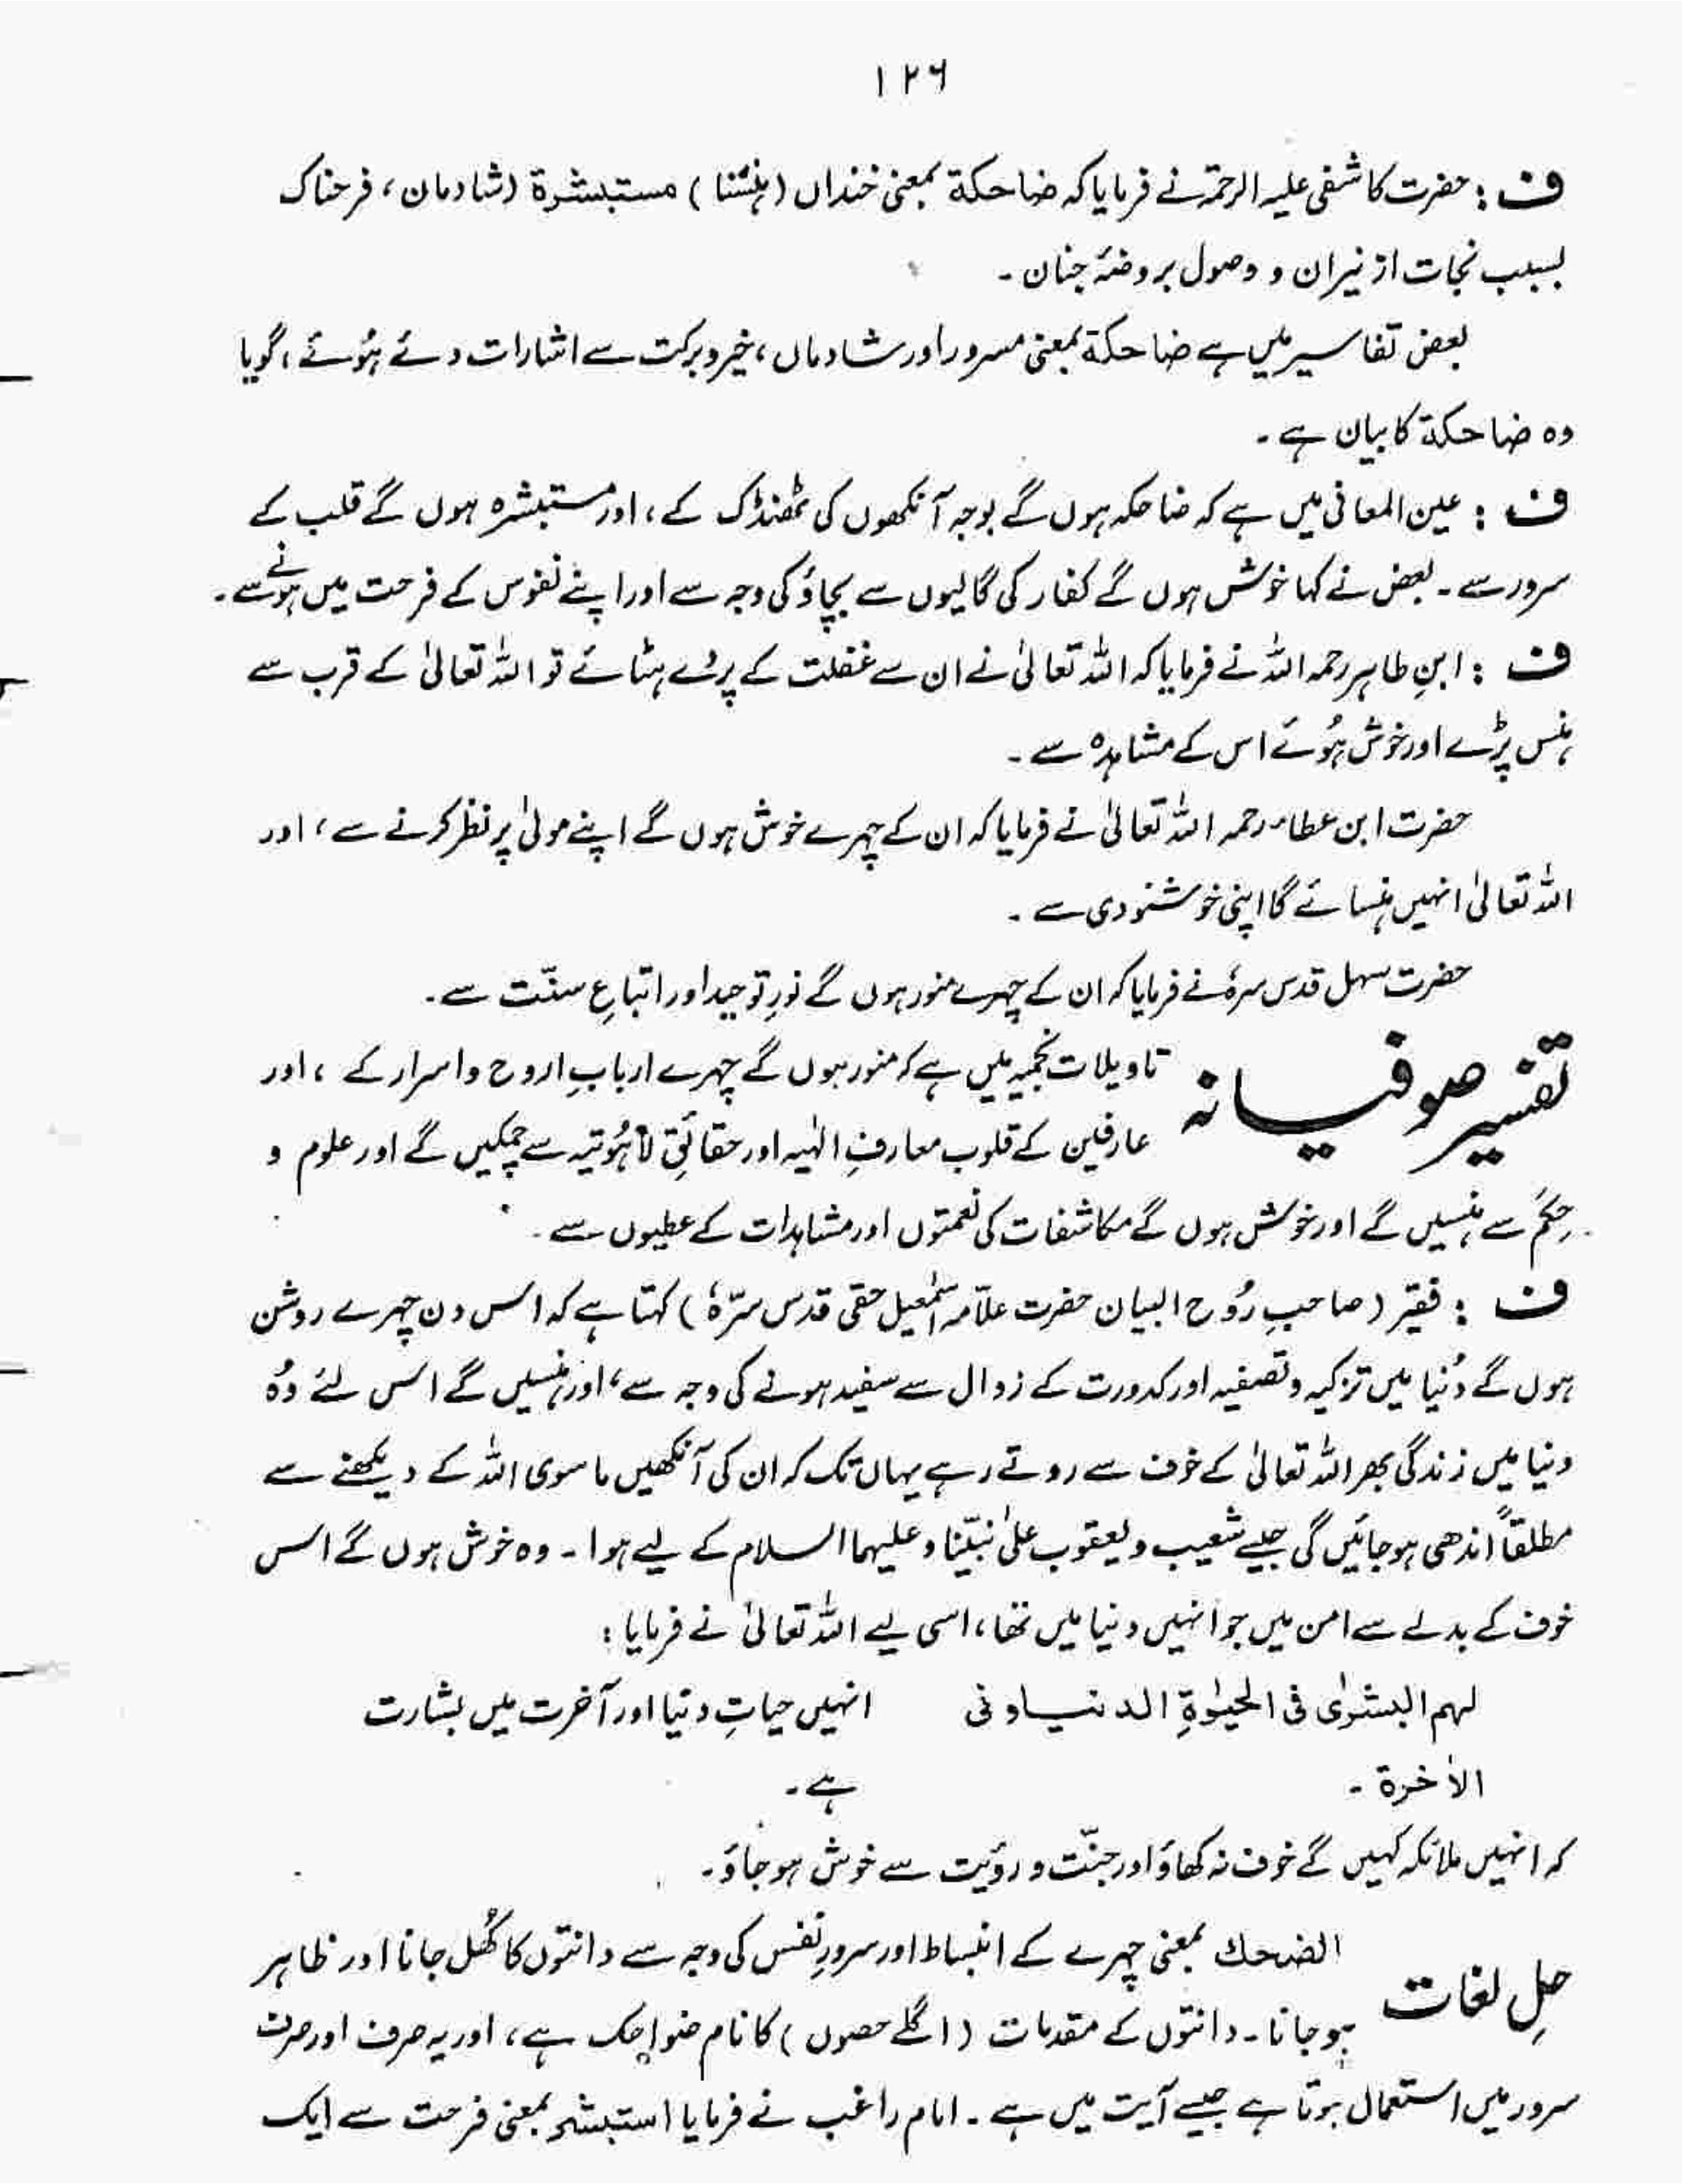 ۱۲۶
ف : حضرت کاشفی علیہ الرحمۃ نے فرمایا کہ ضاحکۃ بمعنی خنداں (ہنسنا) مستبشرۃ (شادمان، فرحناک
بسبب نجات از نیران و وصول بروضۂ جنان ۔
بعض تفاسیر میں ہے ضاحکۃ بمعنی مسرور اور شادماں، خیر و برکت سے اشارات دئے ہُوئے، گویا
وہ ضاحکۃ کا بیان ہے ۔
ف : عین المعانی میں ہے کہ ضاحکہ ہوں گے بوجہ آنکھوں کی ٹھنڈک کے، اور مستبشرہ ہوں گے قلب کے
سرور سے ۔ بعض نے کہا خوش ہوں گے کفار کی گالیوں سے بچاؤ کی وجہ سے اور اپنے نفوس کے فرحت میں ہونے سے ۔
ف : ابنِ طاہر رحمہ اللہ نے فرمایا کہ اللہ تعالیٰ نے ان سے غفلت کے پردے ہٹائے تو اللہ تعالیٰ کے قرب سے
ہنس پڑے اور خوش ہُوئے اس کے مشاہدہ سے ۔
حضرت ابن عطاء رحمہ اللہ تعالیٰ نے فرمایا کہ ان کے چہرے خوش ہوں گے اپنے مولیٰ پر نظر کرنے سے، اور
اللہ تعالیٰ انہیں ہنسائے گا اپنی خوشنودی سے ۔
حضرت سہل قدس سرہٗ نے فرمایا کہ ان کے چہرے منور ہوں گے نورِ توحید اور اتباعِ سنّت سے ۔
تفسیر صوفیانہ تاویلات نجمیہ میں ہے کہ منور ہوں گے چہرے اربابِ ارواح و اسرار کے، اور
عارفین کے قلوب معارفِ الٰہیہ اور حقائقِ لاہُوتیہ سے چمکیں گے اور علوم و
حِکَم سے ہنسیں گے اور خوش ہوں گے مکاشفات کی نعمتوں اور مشاہدات کے عطیوں سے ۔
ف : فقیر (صاحبِ رُوح البیان حضرت علامہ اسمٰعیل حقی قدس سرّہٗ) کہتا ہے کہ اس دن چہرے روشن
ہوں گے دُنیا میں تزکیہ و تصفیہ اور کدورت کے زوال سے سفید ہونے کی وجہ سے، اور ہنسیں گے اس لئے وُہ
دنیا میں زندگی بھر اللہ تعالیٰ کے خوف سے روتے رہے یہاں تک کہ ان کی آنکھیں ماسوی اللہ کے دیکھنے سے
مطلقاً اندھی ہو جائیں گی جیسے شعیب و یعقوب علیٰ نبیّنا و علیہما السلام کے لیے ہوا ۔ وہ خوش ہوں گے اس
خوف کے بدلے سے امن میں جو انہیں دنیا میں تھا، اسی لیے اللہ تعالیٰ نے فرمایا :
لہم البشرٰی فی الحیٰوۃِ الدنیا و فی انہیں حیاتِ دنیا اور آخرت میں بشارت
الاٰخرۃ ۔ ہے ۔
کہ انہیں ملائکہ کہیں گے خوف نہ کھاؤ اور جنّت و رؤیت سے خوش ہو جاؤ ۔
حلِ لغات الضحك بمعنی چہرے کے انبساط اور سرورِ نفس کی وجہ سے دانتوں کا کُھل جانا اور ظاہر
ہو جانا ۔ دانتوں کے مقدمات (اگلے حصوں) کا نام ضواحک ہے، اور یہ صرف اور صرف
سرور میں استعمال ہوتا ہے جیسے آیت میں ہے ۔ امام راغب نے فرمایا استبشر بمعنی فرحت سے ایک